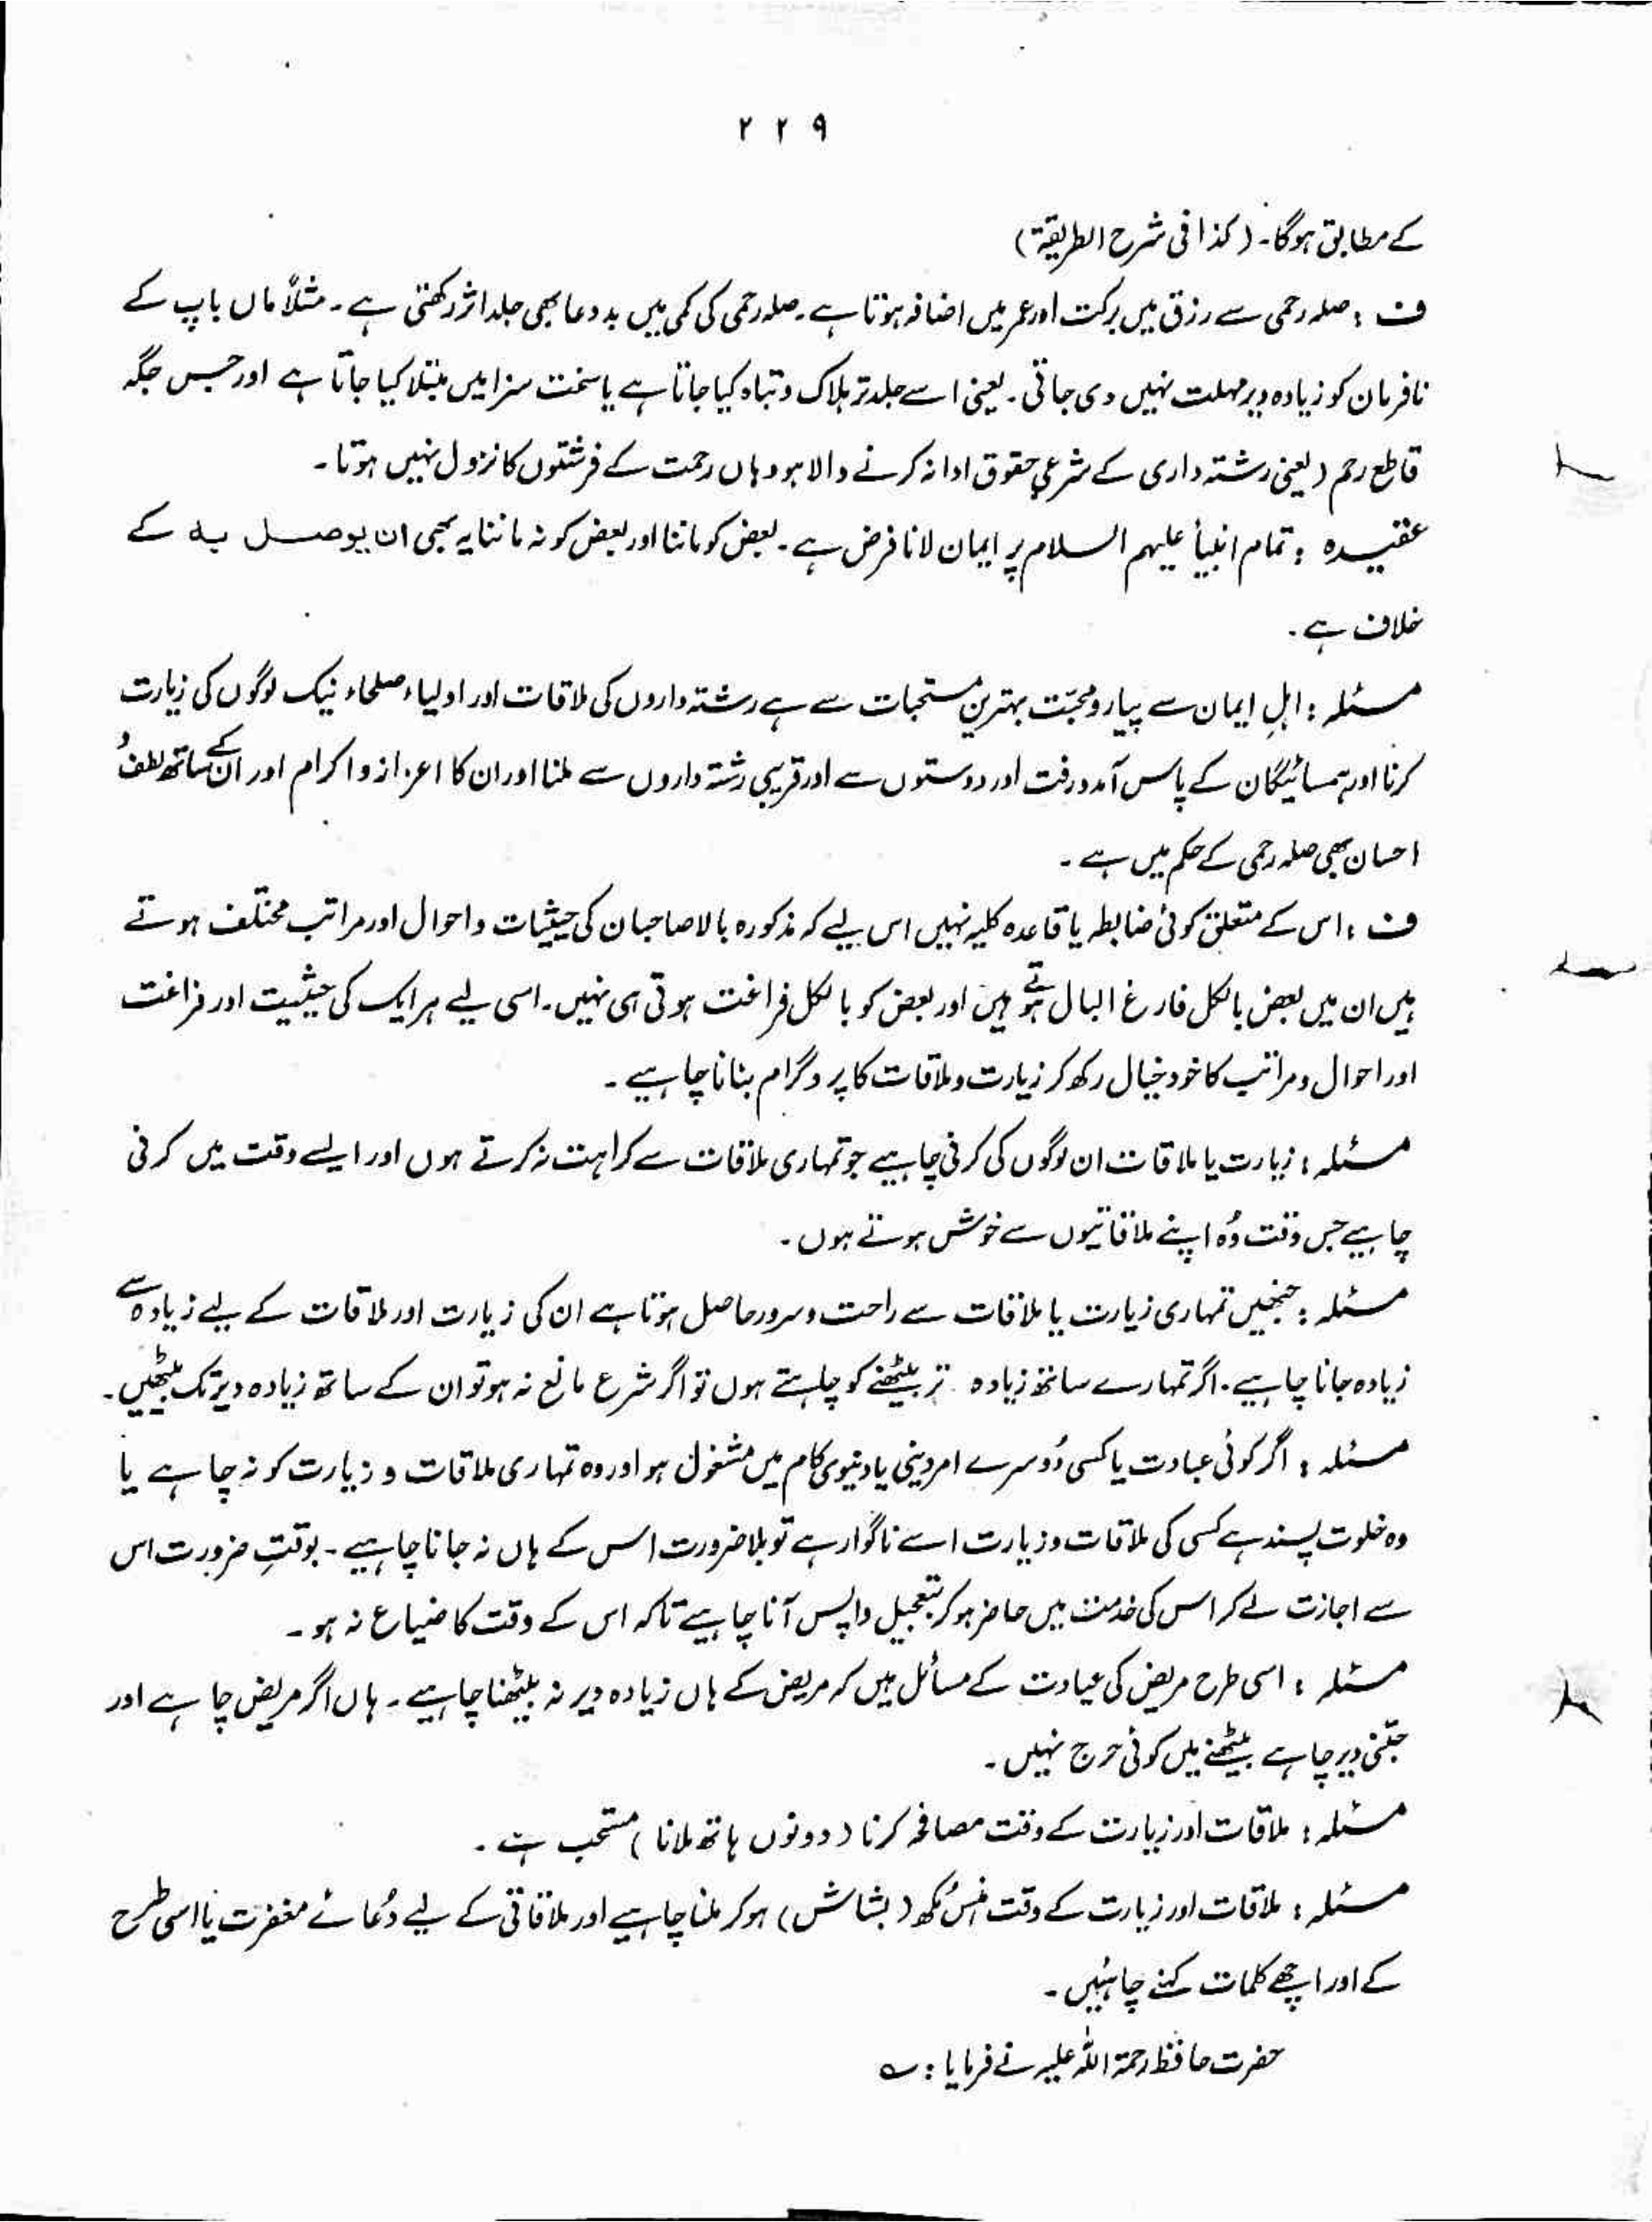 ۲۲۹
کے مطابق ہوگا۔ (کذا فی شرح الطریقۃ)
ف : صلہ رحمی سے رزق میں برکت اور عمر میں اضافہ ہوتا ہے۔ صلہ رحمی کی کمی میں بددعا بھی جلد اثر رکھتی ہے۔ مثلاً ماں باپ کے
نافرمان کو زیادہ دیر مہلت نہیں دی جاتی۔ یعنی اسے جلد تر ہلاک و تباہ کیا جاتا ہے یا سخت سزا میں مبتلا کیا جاتا ہے اور جس جگہ
قاطع رحم (یعنی رشتہ داری کے شرعی حقوق ادا نہ کرنے والا ہو وہاں رحمت کے فرشتوں کا نزول نہیں ہوتا۔
عقیدہ : تمام انبیاء علیہم السلام پر ایمان لانا فرض ہے۔ بعض کو ماننا اور بعض کو نہ ماننا یہ بھی ان یوصل بہ کے
خلاف ہے۔
مسئلہ : اہلِ ایمان سے پیار و محبّت بہترین مستحبات سے ہے رشتہ داروں کی ملاقات اور اولیاء صلحاء نیک لوگوں کی زیارت
کرنا اور ہمسائیگان کے پاس آمدورفت اور دوستوں سے اور قریبی رشتہ داروں سے ملنا اور ان کا اعزاز و اکرام اور ان کے ساتھ لطف و
احسان بھی صلہ رحمی کے حکم میں ہے۔
ف : اس کے متعلق کوئی ضابطہ یا قاعدہ کلیہ نہیں اس لیے کہ مذکورہ بالا صاحبان کی حیثیات و احوال اور مراتب مختلف ہوتے
ہیں ان میں بعض بالکل فارغ البال ہوتے ہیں اور بعض کو بالکل فراغت ہوتی ہی نہیں۔ اسی لیے ہر ایک کی حیثیت اور فراغت
اور احوال و مراتب کا خود خیال رکھ کر زیارت و ملاقات کا پروگرام بنانا چاہیے۔
مسئلہ : زیارت یا ملاقات ان لوگوں کی کرنی چاہیے جو تمہاری ملاقات سے کراہت نہ کرتے ہوں اور ایسے وقت میں کرنی
چاہیے جس وقت وُہ اپنے ملاقاتیوں سے خوش ہوتے ہوں۔
مسئلہ : جنھیں تمہاری زیارت یا ملاقات سے راحت و سرور حاصل ہوتا ہے ان کی زیارت اور ملاقات کے لیے زیادہ سے
زیادہ جانا چاہیے۔ اگر تمہارے ساتھ زیادہ تر بیٹھنے کو چاہتے ہوں تو اگر شرع مانع نہ ہو تو ان کے ساتھ زیادہ دیر تک بیٹھیں۔
مسئلہ : اگر کوئی عبادت یا کسی دُوسرے امر دینی یا دنیوی کام میں مشغول ہو اور وہ تمہاری ملاقات و زیارت کو نہ چاہے یا
وہ خلوت پسند ہے کسی کی ملاقات و زیارت اسے ناگوار ہے تو بلا ضرورت اس کے ہاں نہ جانا چاہیے۔ بوقتِ ضرورت اس
سے اجازت لے کر اس کی خدمت میں حاضر ہو کر بتعجیل واپس آنا چاہیے تاکہ اس کے وقت کا ضیاع نہ ہو۔
مسئلہ : اسی طرح مریض کی عیادت کے مسائل ہیں کہ مریض کے ہاں زیادہ دیر نہ بیٹھنا چاہیے۔ ہاں اگر مریض چاہے اور
جتنی دیر چاہے بیٹھنے میں کوئی حرج نہیں۔
مسئلہ : ملاقات اور زیارت کے وقت مصافحہ کرنا (دونوں ہاتھ ملانا) مستحب ہے۔
مسئلہ : ملاقات اور زیارت کے وقت ہنس مُکھ (بشاش) ہو کر ملنا چاہیے اور ملاقاتی کے لیے دُعائے مغفرت یا اسی طرح
کے اور اچھے کلمات کہنے چاہئیں۔
حضرت حافظ رحمۃ اللہ علیہ نے فرمایا : ؎